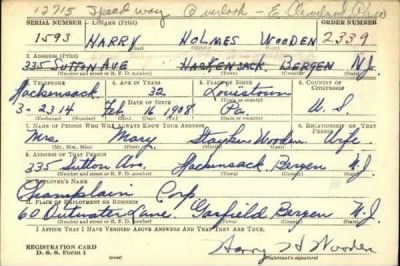 12715 Speedway Overlook - E. Cleveland, Ohio
SERIAL NUMBER 1. NAME (Print) ORDER NUMBER
1593 HARRY HOLMES WOODEN 2339
2. ADDRESS (Print)
335 SUTTON AVE HACKENSACK BERGEN N.J.
(Number and street or R. F. D. number) (Town) (County) (State)
3. TELEPHONE 4. AGE IN YEARS 5. PLACE OF BIRTH 6. COUNTRY OF CITIZENSHIP
Hackensack 32
DATE OF BIRTH
3-2314 Feb 1908 Pa. U.S.
(Exchange) (Number) (Mo.) (Day) (Yr.) (Town or county) (State or country)
7. NAME OF PERSON WHO WILL ALWAYS KNOW YOUR ADDRESS RELATIONSHIP OF THAT PERSON
Mrs. Mary Wooden Wife
(Mr., Mrs., Miss) (First) (Middle) (Last)
ADDRESS OF THAT PERSON
335 Sutton Ave. Hackensack, Bergen N.J.
(Number and street or R. F. D. number) (Town) (County) (State)
EMPLOYER'S NAME
Champlain Corp.
11. PLACE OF EMPLOYMENT OR BUSINESS
60 Outwater Lane, Garfield Bergen N.J.
(Number and street or R. F. D. number) (Town) (County) (State)
I AFFIRM THAT I HAVE VERIFIED ABOVE ANSWERS AND THAT THEY ARE TRUE.
REGISTRATION CARD
D. S. S. Form 1 (over)
Harry H Wooden
(Registrant's signature)